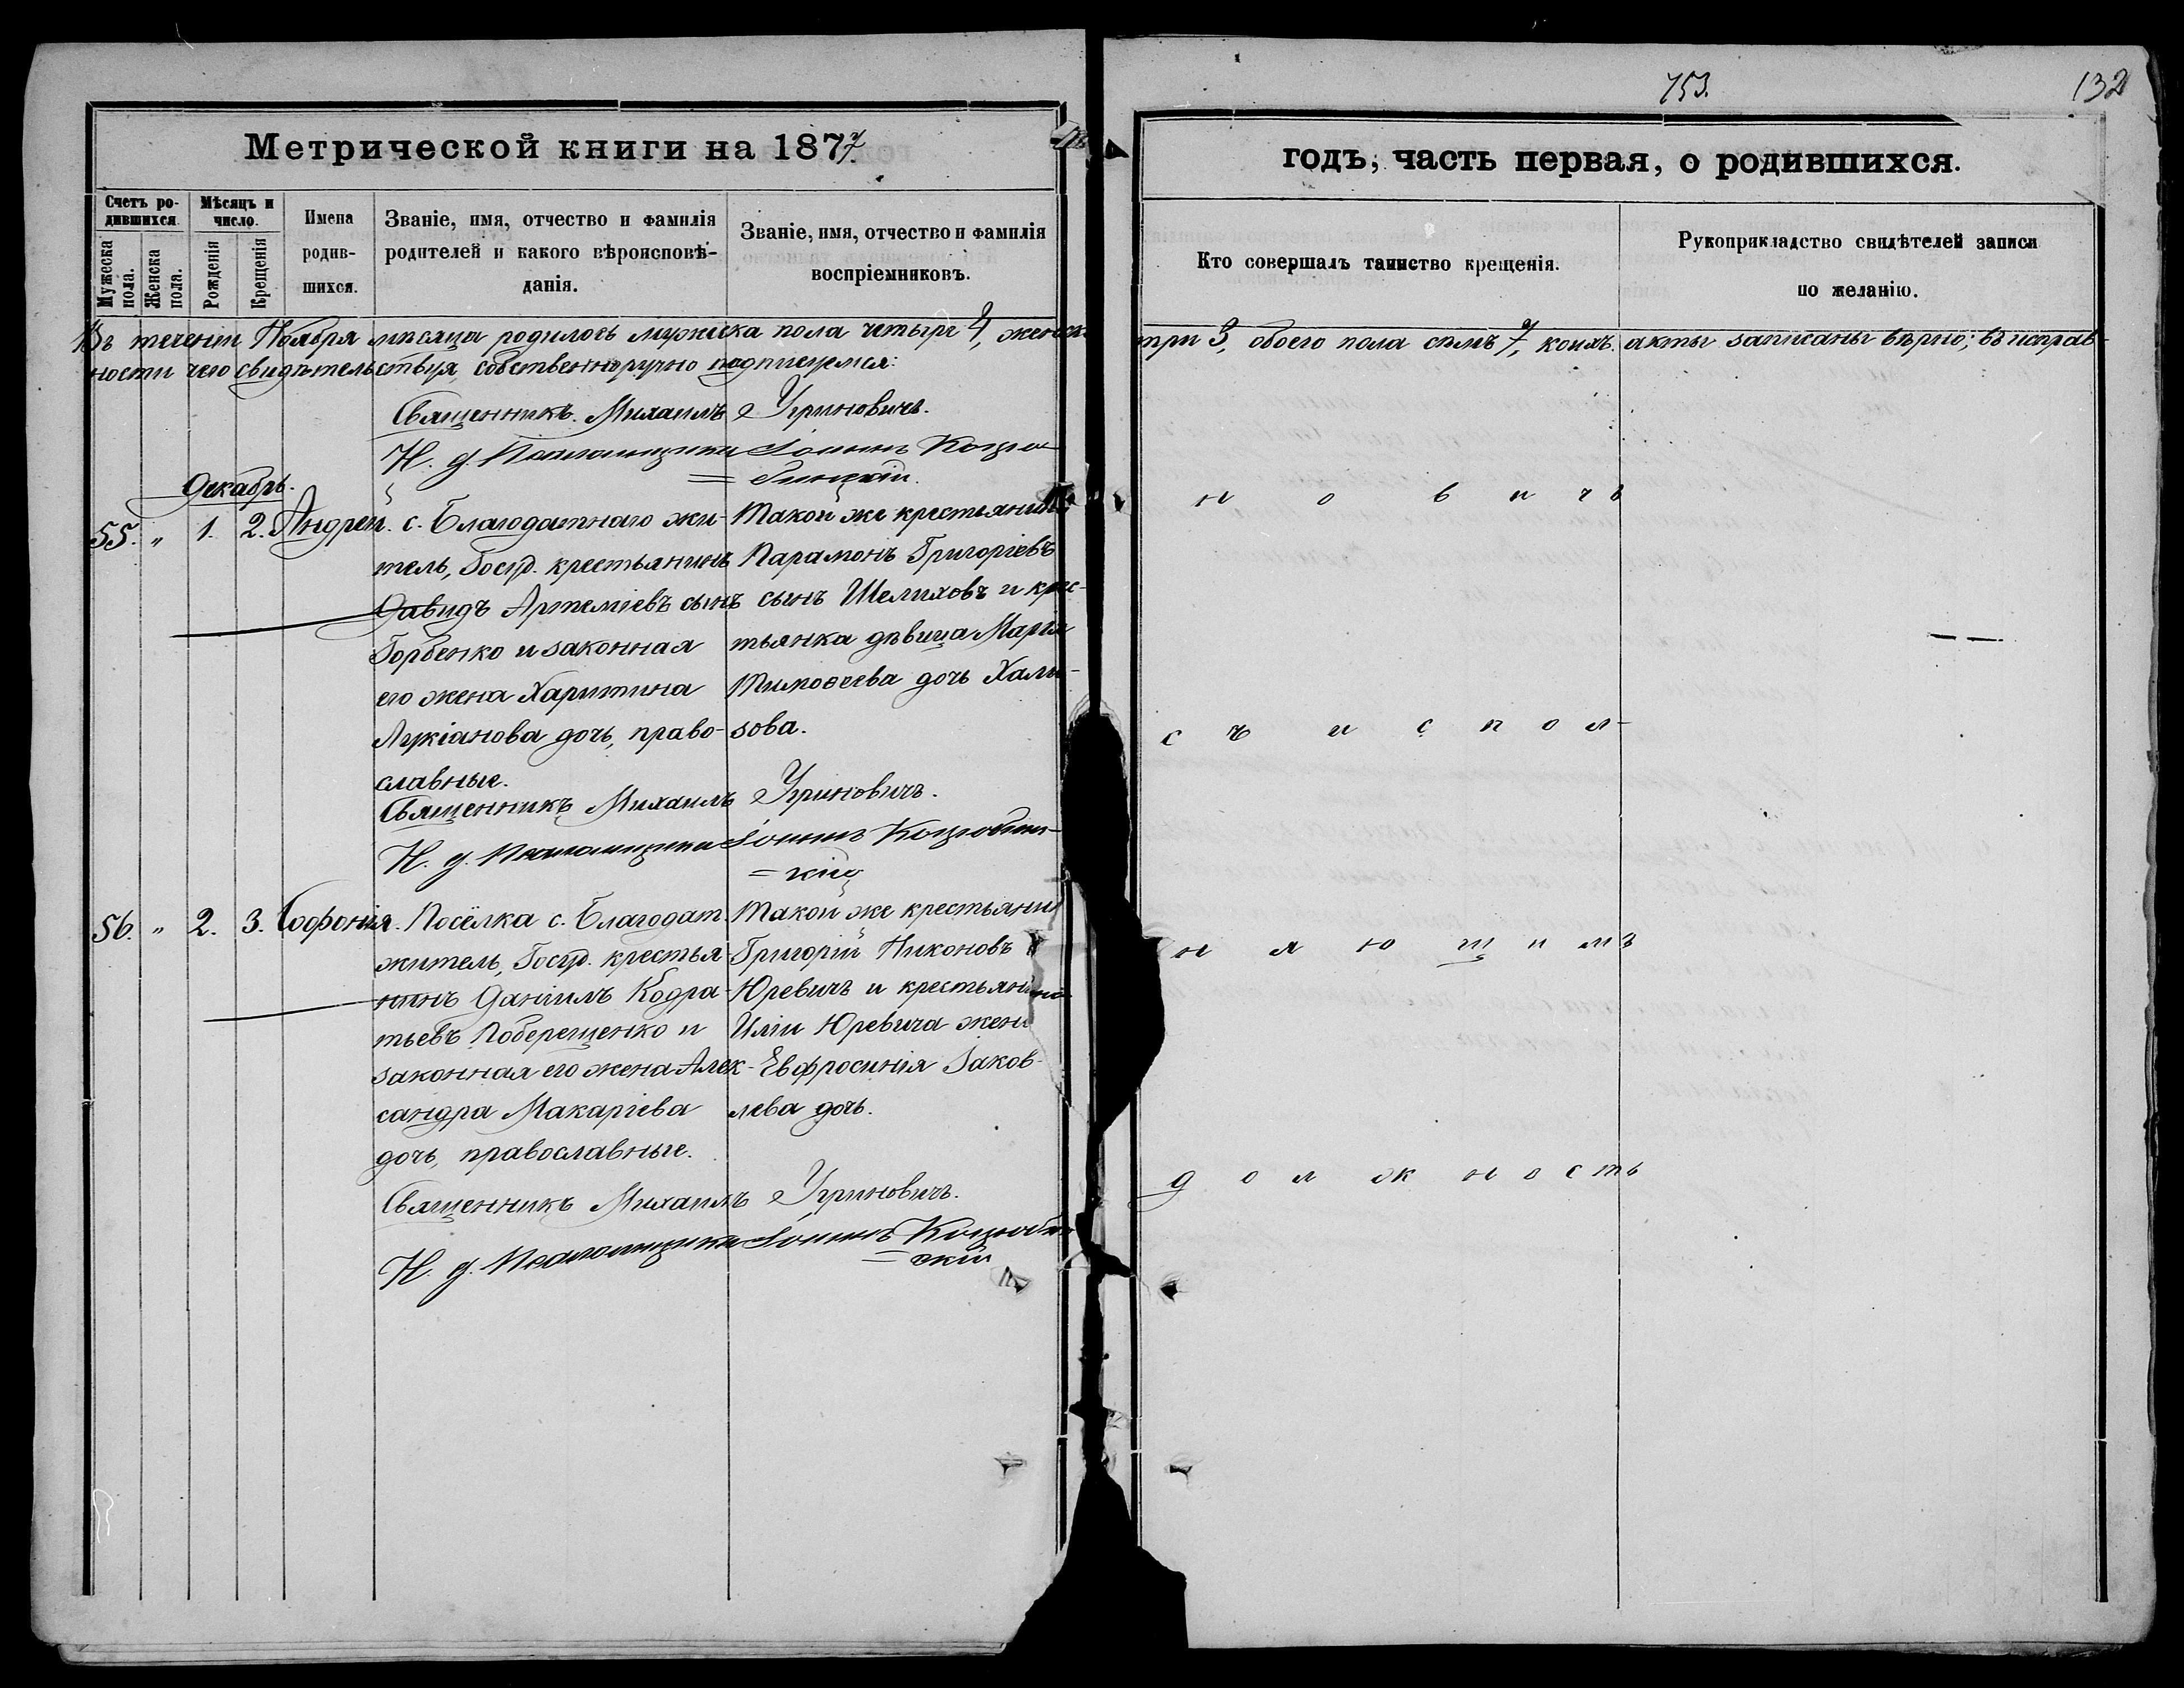 753.
132
Метрической книги на 1877.
годъ, часть первая, о родившихся.
Счетъ ро-
дившихся.
Мужеска пола.
Женска пола.
Мѣсяцъ и
число.
Рожденія
Крещенія
Имена
родив-
шихся.
Званіе, имя, отчество и фамилія
родителей и какого вѣроисповѣ-
данія.
Званіе, имя, отчество и фамилія
воспріемниковъ.
Кто совершалъ таинство крещенія.
Рукоприкладство свидѣтелей записи
по желанію.
Въ теченіи Ноября мѣсяца родилось мужеска пола четыре 4, женска три 3, обоего пола семь 7, коихъ акты записаны вѣрно; въ исправ-
ности чего свидѣтельствуя, собственноручно подписуемся:
Священникъ Михаилъ Угриновичъ.
Н. д. Псаломщика Іоаннъ Коцю-
=бинскій.
Декабрь.
55. " 1. 2. Андрей.
с. Благодатнаго жи-
тель, Госуд. крестьянинъ
Давидъ Артеміевъ сынъ
Горбенко и законная
его жена Харитина
Лукіанова дочь, право-
славные.
Такой же крестьянинъ
Парамонъ Григоріевъ
сынъ Шелиховъ и крес-
тьянка дѣвица Марія
Тимоѳеева дочь Халы-
зова.
Священникъ Михаилъ Угриновичъ.
Н. д. Псаломщика Іоаннъ Коцюбин-
=скій
56. " 2. 3. Софонія.
Посёлка с. Благодат.
житель, Госуд. крестья-
нинъ Даніилъ Кодра-
тьевъ Поберещенко и
законная его жена Алек-
сандра Макаріева
дочь, православные.
Такой же крестьянин
Григорій Никоновъ
Юревичъ и крестьянина
Иліи Юревича жена
Евфросинія Іаков-
лева дочь.
Священникъ Михаилъ Угриновичъ.
Н. д. Псаломщика Іоаннъ Коцюбин-
=скій
н о в и ч ъ
с ъ и с п о л-
н я ю щ и м ъ
д о л ж н о с т ь